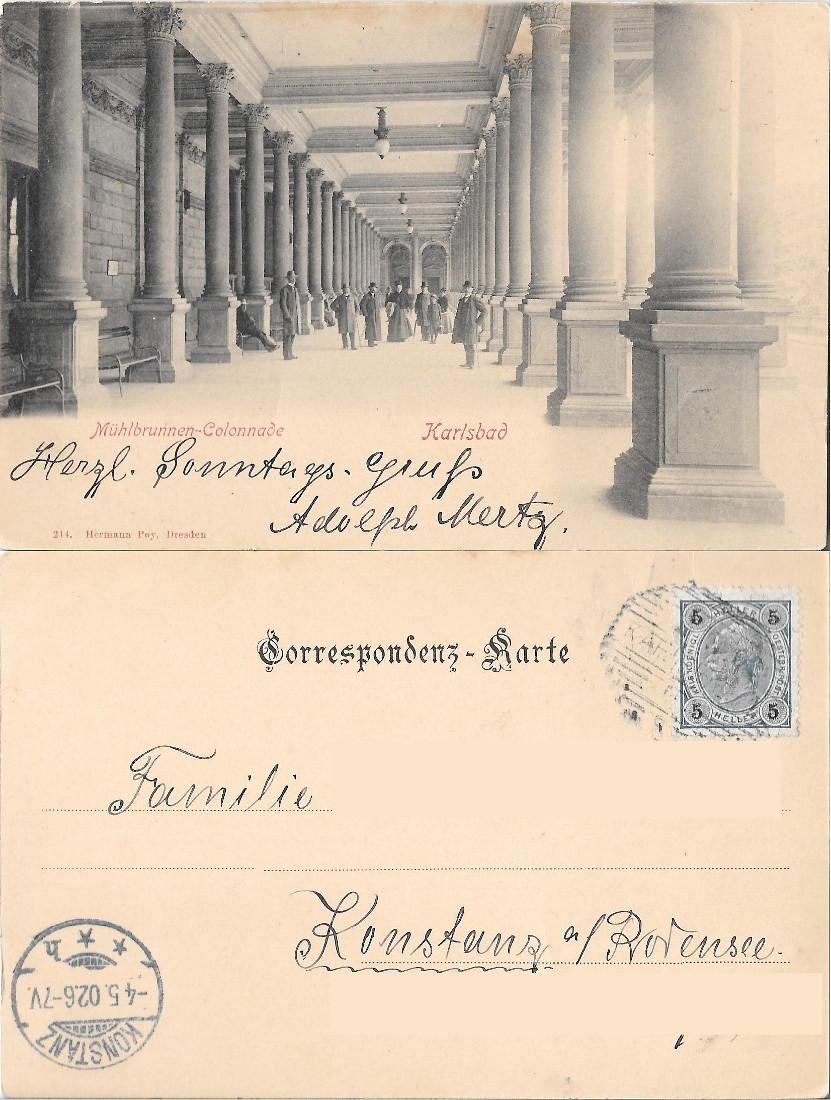 Mühlbrunnen-Colonnade Karlsbad
Herzl. Sonntags-Gruß
Adolph Mertz.
214. Hermann Poy, Dresden
Correspondenz-Karte
5 HELLER 5
5 HELLER 5
Familie
Konstanz a/Bodensee.
KONSTANZ
-4.5.02.6-7V.
* * h